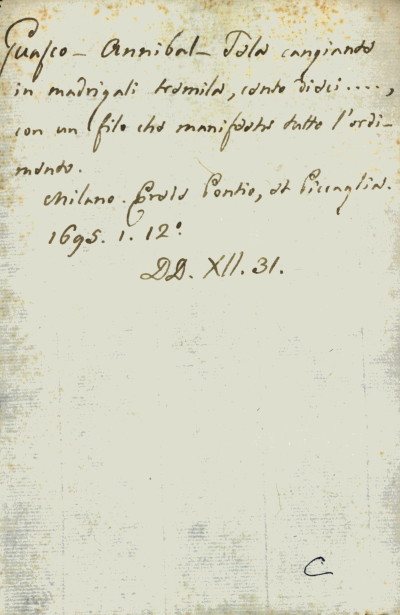 Guasco - Annibal - Tela cangiante
in madrigali tremila, cento dieci....,
con un filo che manifesta tutto l'ordi-
mento.
Milano. Erede Pontio, et Piccaglia.
1695. 1. 12°.
DD. XII. 31.
C